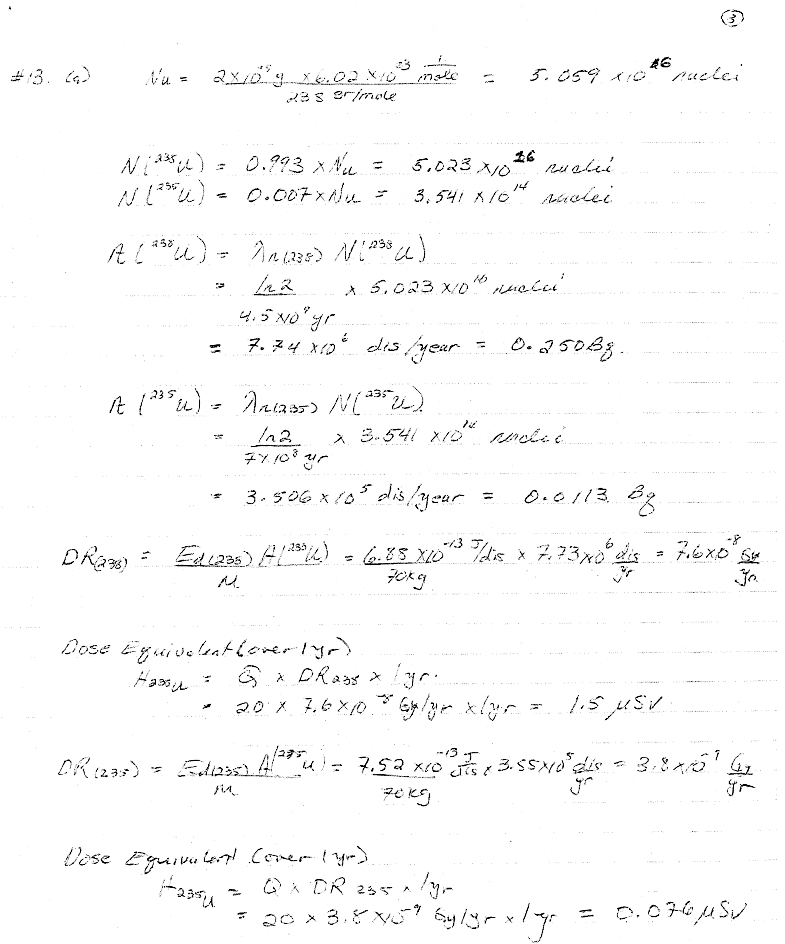 ③
#13. (a) Nu = 2×10⁻⁵g × 6.02×10²³ 1/mole / 238 gr/mole = 5.059 ×10¹⁶ nuclei
N(²³⁸U) = 0.993 × Nu = 5.023 ×10¹⁶ nuclei
N(²³⁵U) = 0.007×Nu = 3.541 ×10¹⁴ nuclei
A(²³⁸U) = λr(238) N(²³⁸U)
= ln2 / 4.5×10⁹yr × 5.023 ×10¹⁶ nuclei
= 7.74 ×10⁶ dis/year = 0.250Bq.
A(²³⁵U) = λr(235) N(²³⁵U)
= ln2 / 7×10⁸ yr × 3.541 ×10¹⁴ nuclei
= 3.506 ×10⁵ dis/year = 0.0113 Bq
DR(238) = Ed(238) A(²³⁸U) / M = 6.88 ×10⁻¹³ J/dis / 70kg × 7.73×10⁶ dis/yr = 7.6×10⁻⁸ Gy/yr
Dose Equivalent (over 1yr)
H238U = Q × DR238 × 1yr.
= 20 × 7.6×10⁻⁸ Gy/yr ×1yr = 1.5 μSv
DR(235) = Ed(235) A(²³⁵U) / M = 7.52 ×10⁻¹³ J/dis / 70kg × 3.55×10⁵ dis/yr = 3.8×10⁻⁹ Gy/yr
Dose Equivalent (over 1yr)
H235U = Q × DR 235 × 1yr
= 20 × 3.8×10⁻⁹ Gy/yr × 1yr = 0.076μSv